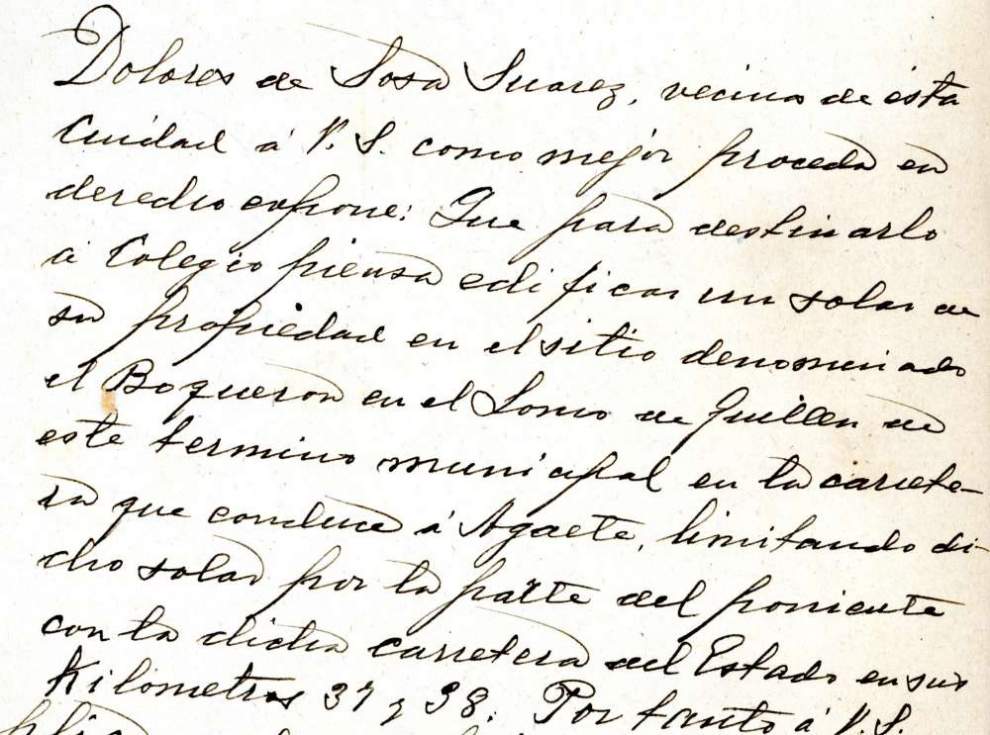 Dolores de Sosa Suarez, vecina de esta
Ciudad á V. S. como mejor proceda en
derecho expone: Que para destinarlo
á Colegio piensa edificar un solar de
su propiedad en el sitio denominado
el Boqueron en el Lomo de Guillen de
este termino municipal en la carrete-
ra que conduce á Agaete, limitando di-
cho solar por la parte del poniente
con la dicha carretera del Estado en sus
Kilometros 37 y 38. Por tanto á V. S.